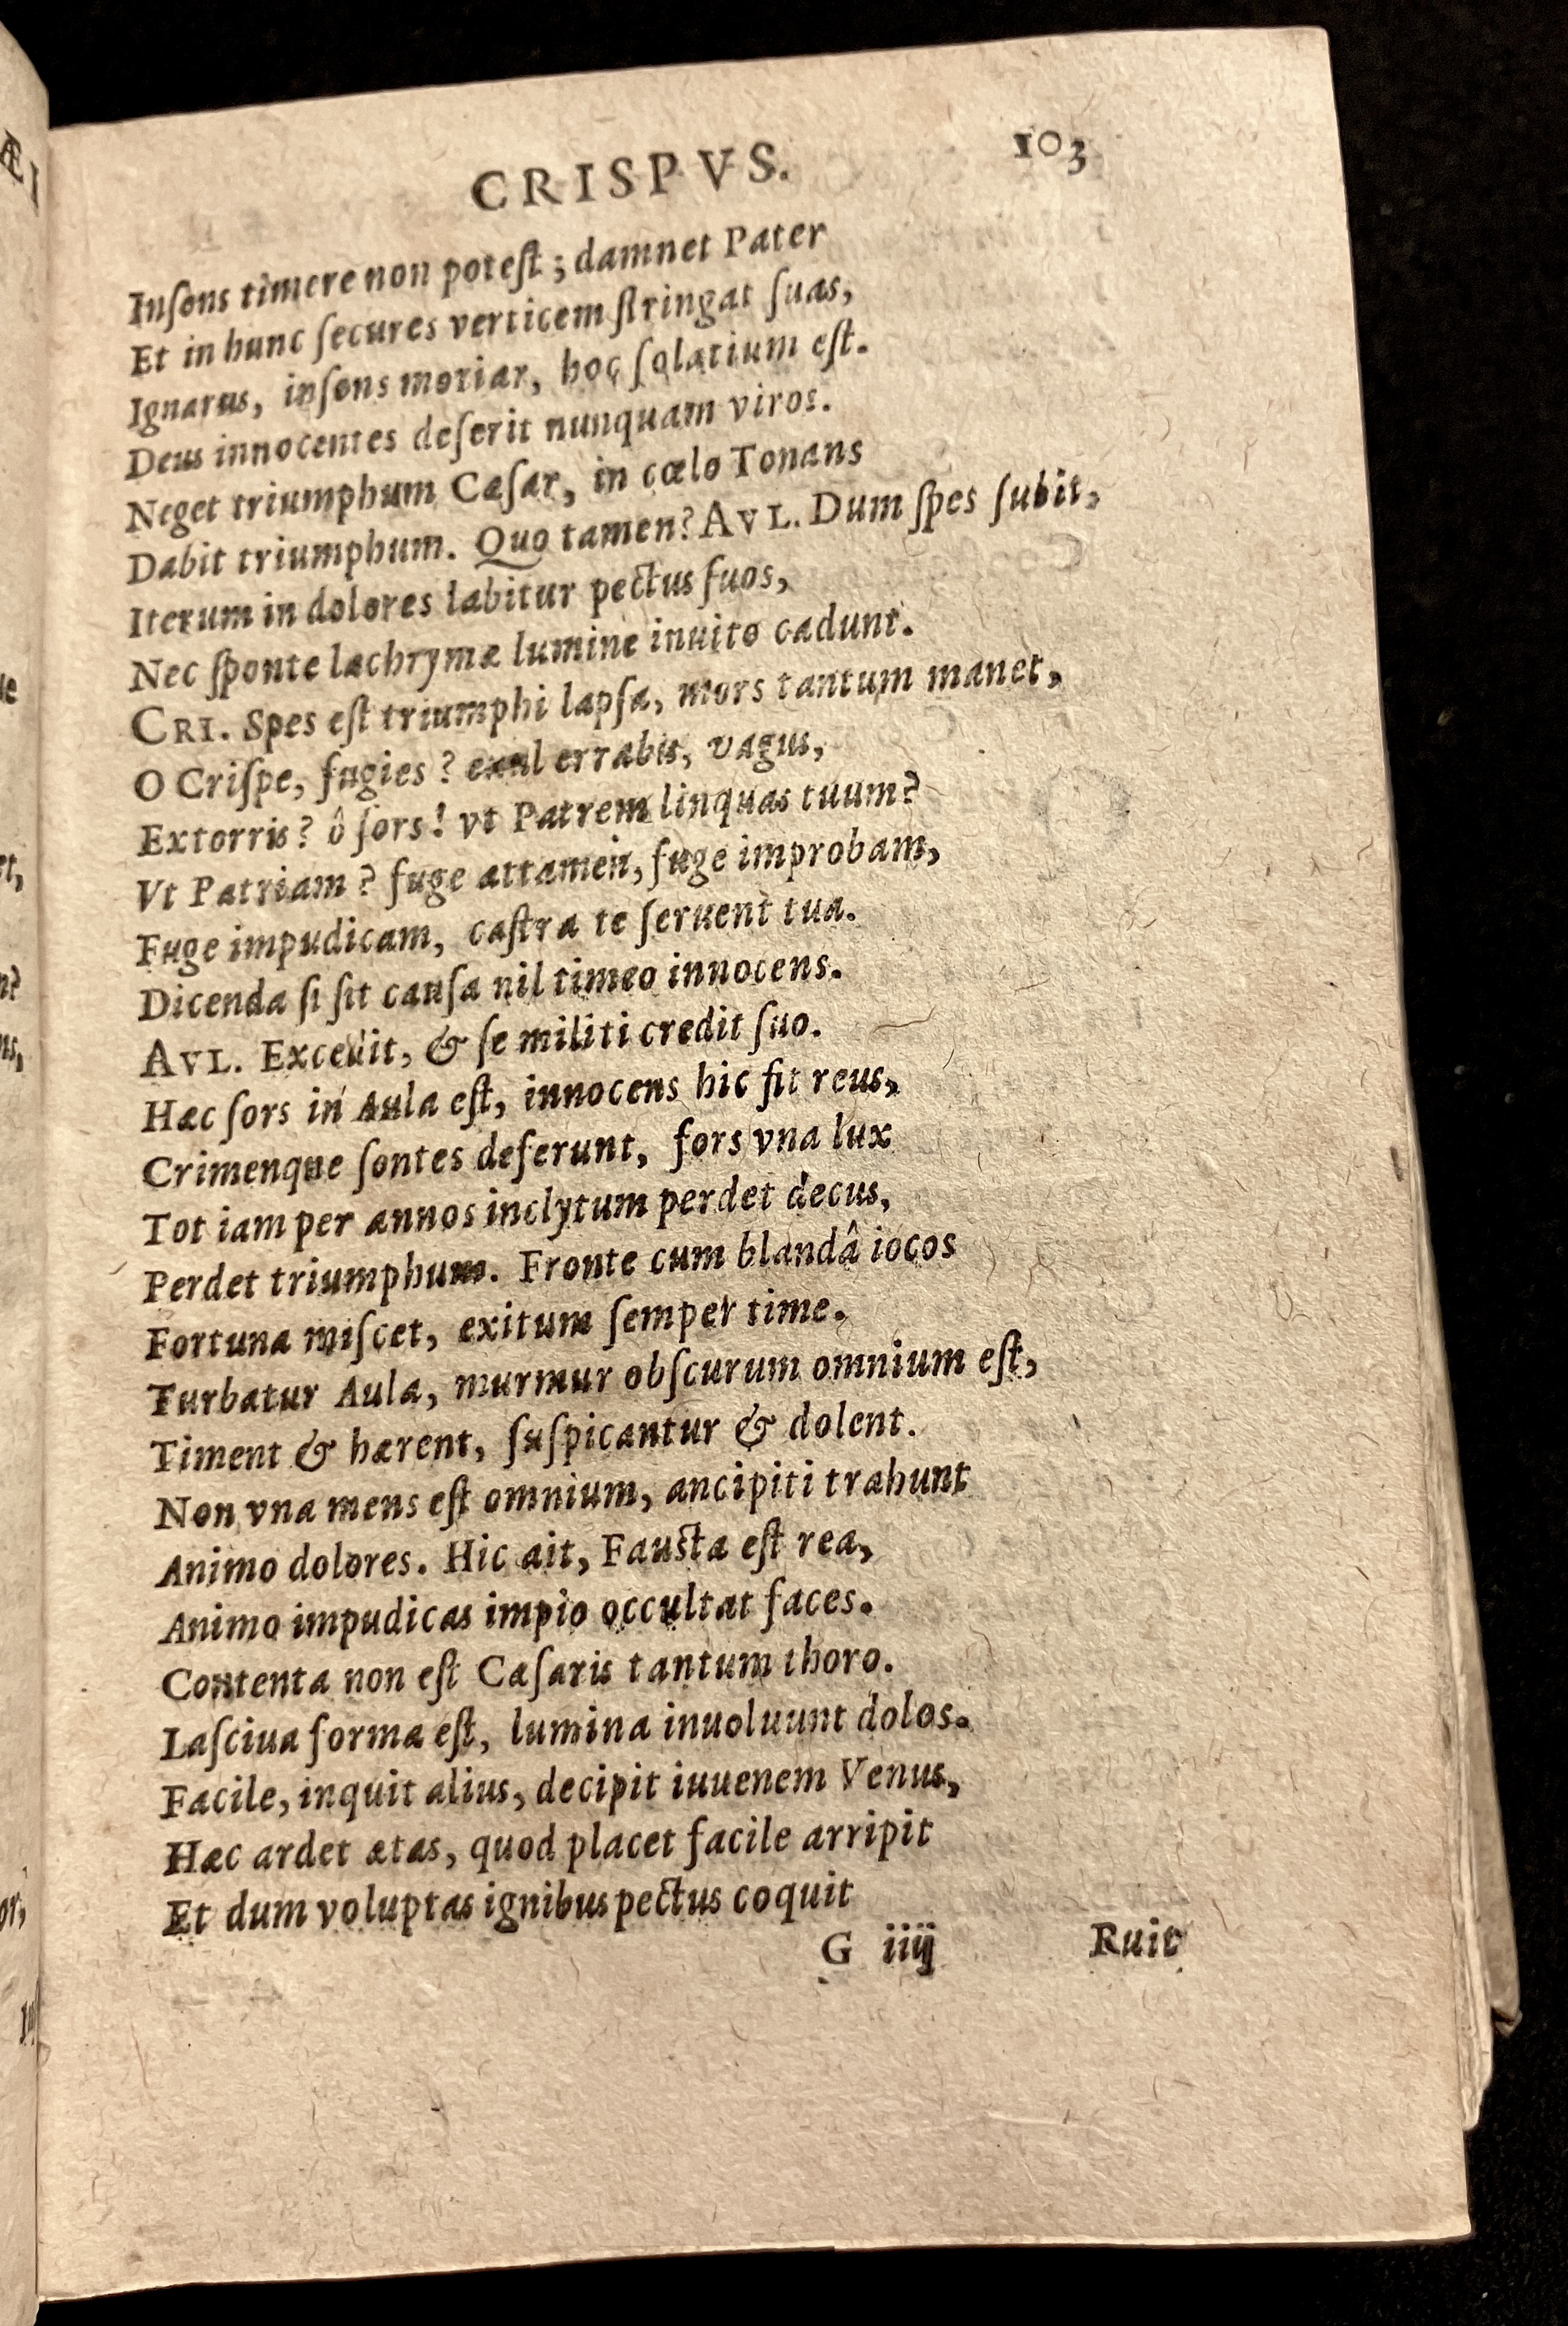 CRISPVS. 103
Inſons timere non poteſt ; damnet Pater
Et in hunc ſecures verticem ſtringat ſuas,
Ignarus, inſons moriar, hoc ſolatium eſt.
Deus innocentes deſerit nunquam viros.
Neget triumphum Cæſar, in cœlo Tonans
Dabit triumphum. Quo tamen? AVL. Dum ſpes ſubit,
Iterum in dolores labitur pectus ſuos,
Nec ſponte lachrymæ lumine inuito cadunt.
CRI. Spes eſt triumphi lapſa, mors tantum manet,
O Criſpe, fugies ? exul errabis, vagus,
Extorris ? ô ſors ! vt Patrem linquas tuum?
Vt Patriam ? fuge attamen, fuge improbam,
Fuge impudicam, caſtra te ſeruent tua.
Dicenda ſi ſit cauſa nil timeo innocens.
AVL. Excedit, & ſe militi credit ſuo.
Hæc ſors in Aula eſt, innocens hic fit reus,
Crimenque ſontes deferunt, fors vna lux
Tot iam per annos inclytum perdet decus,
Perdet triumphum. Fronte cum blandâ iocos
Fortuna miſcet, exitum ſemper time.
Turbatur Aula, murmur obſcurum omnium eſt,
Timent & hærent, ſuſpicantur & dolent.
Non vna mens eſt omnium, ancipiti trahunt
Animo dolores. Hic ait, Fauſta eſt rea,
Animo impudicas impio occultat faces.
Contenta non eſt Cæſaris tantum thoro.
Laſciua forma eſt, lumina inuoluunt dolos.
Facile, inquit alius, decipit iuuenem Venus,
Hæc ardet ætas, quod placet facile arripit
Et dum voluptas ignibus pectus coquit
G iiij Ruit